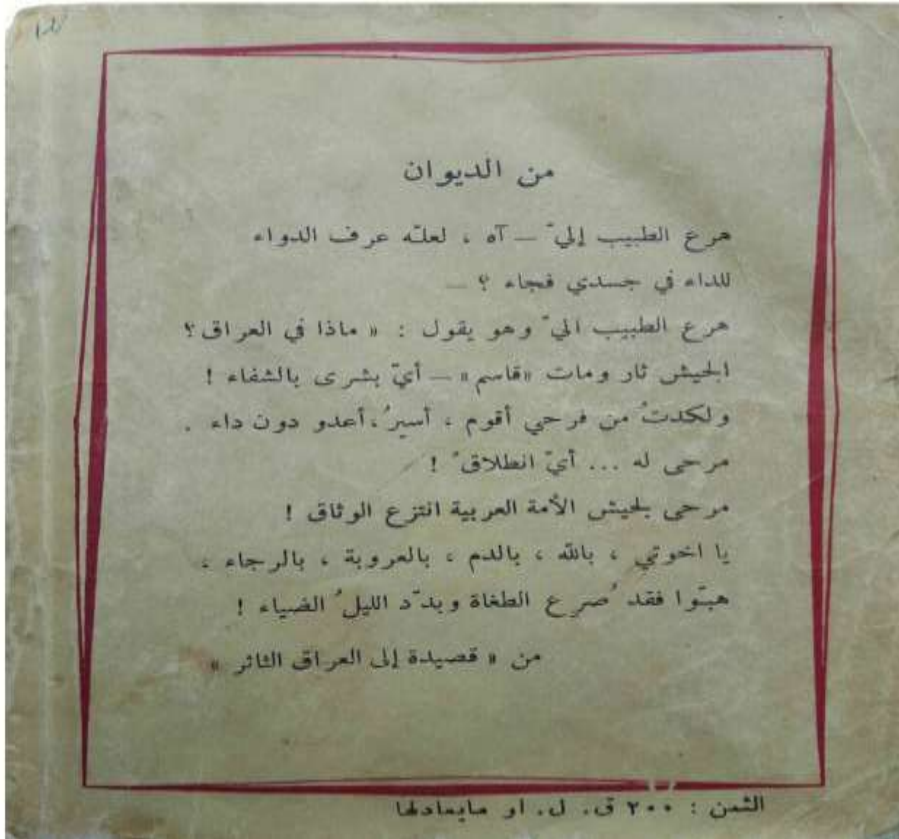 من الديوان
هرع الطبيب إليّ — آه ، لعلّه عرف الدواء
للداء في جسدي فجاء ؟ —
هرع الطبيب اليّ وهو يقول : « ماذا في العراق ؟
الجيش ثار ومات «قاسم» — أيّ بشرى بالشفاء !
ولكدتُ من فرحي أقوم ، أسيرُ ، أعدو دون داء .
مرحى له ... أيّ انطلاقْ !
مرحى لجيش الأمة العربية انتزع الوثاق !
يا اخوتي ، بالله ، بالدم ، بالعروبة ، بالرجاء ،
هبّوا فقد ُصرع الطغاة وبدّد الليلُ الضياء !
من « قصيدة إلى العراق الثائر »
الثمن : ٢٠٠ ق. ل. او مايعادلها